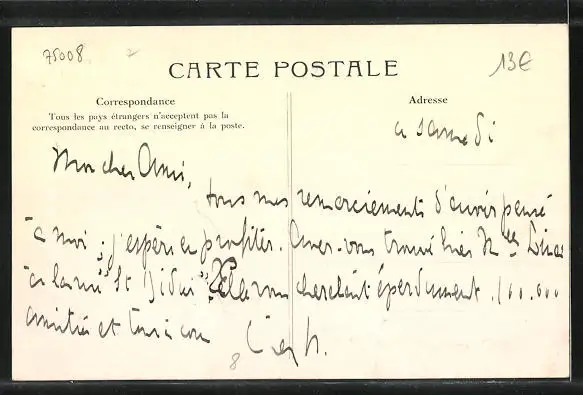 75008
13€
CARTE POSTALE
Correspondance
Adresse
Tous les pays étrangers n'acceptent pas la
correspondance au recto, se renseigner à la poste.
a samedi
Mon cher Ami,
tous mes remerciements d'avoir pensé
à moi, j'espère en profiter. Avez-vous trouvé hier
à la rue St Didier cherchait éperdument. 100.000
amitiés et
8